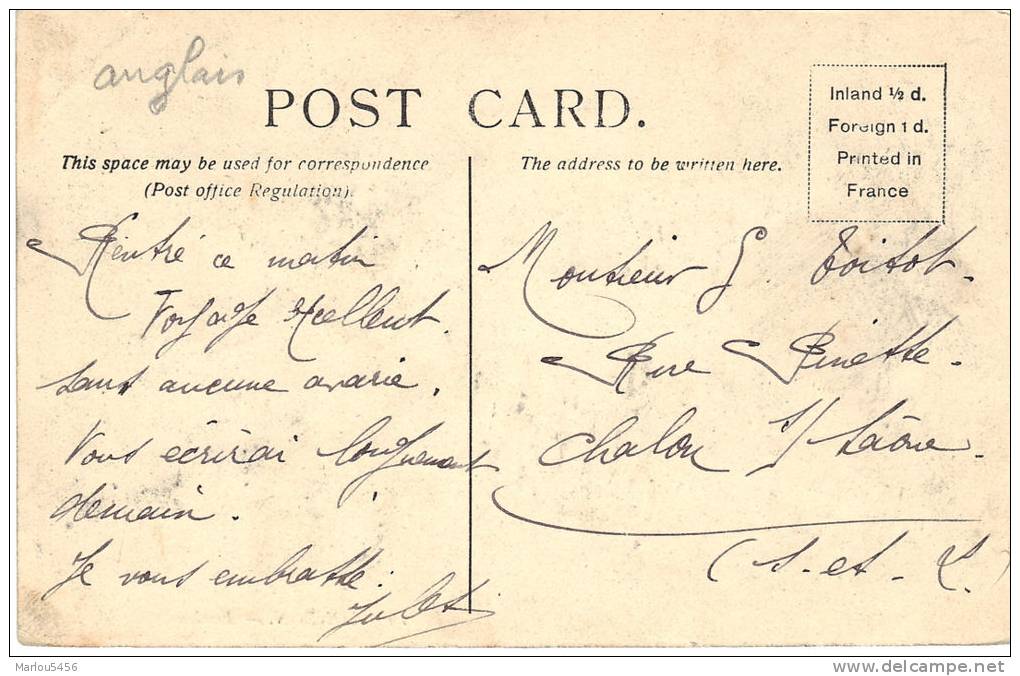 anglais
POST CARD.
Inland ½ d.
Foreign 1 d.
Printed in
France
This space may be used for correspondence
(Post office Regulation).
The address to be written here.
Rentré ce matin
Voyage excellent.
sans aucune avarie.
Vous écrirai longuement
demain.
Je vous embrasse.
Jules
Monsieur G. Toitot.
Rue
Chalon s/ Saône.
(S.-et-L.)
Marlou5456
www.delcampe.net